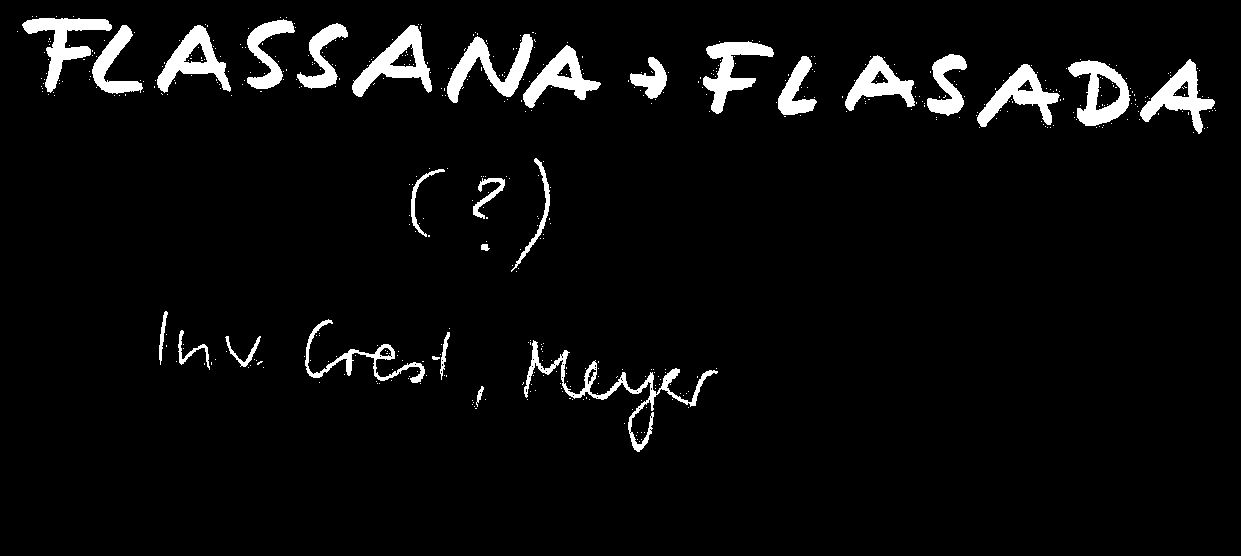 FLASSANA → FLASADA
(?)
Inv. Crest, Meyer